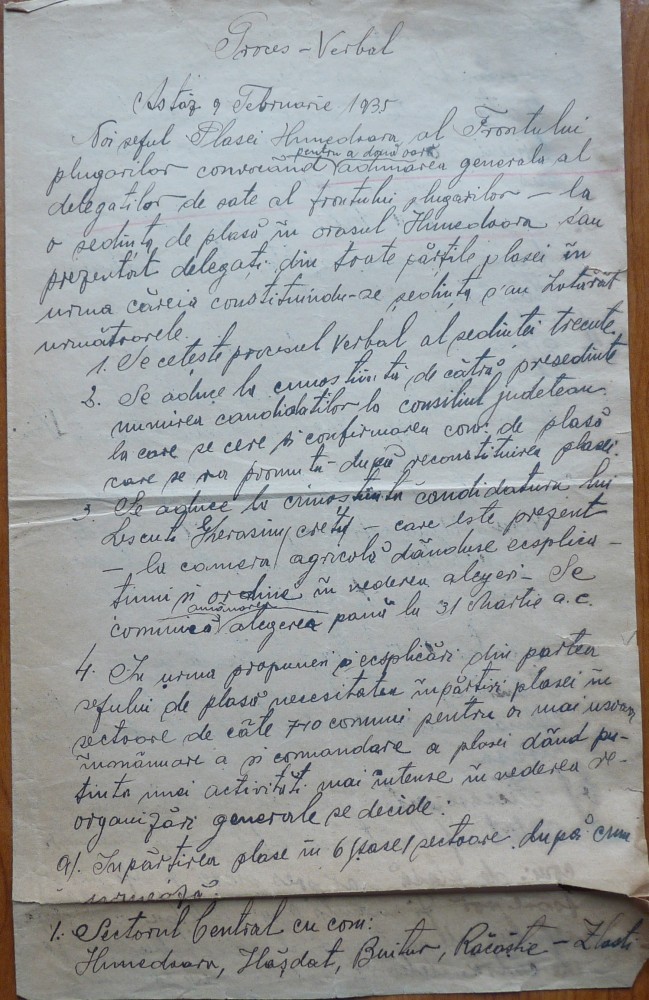 Proces-Verbal
Astăz 9 Februarie 1935
Noi șeful Plasei Hunedoara al Frontului
pentru a doua oară
plugarilor convocând adunarea generala al
delegaților de sate al frontului plugarilor – la
o sedința de plasă în orasul Hunedoara sau
prezentat delegați din toate părțile plasei în
urma căreia constituindu-se ședința s'au hotărât
următoarele.
1. Se cetește procesul Verbal al sedintei trecute.
2. Se aduce la cunostiinta de cătră presedinte
numirea candidatilor la consiliul judetean
la care se cere și confirmarea com. de plasă
care se va promita după reconstituirea plasei.
3. Se aduce la cunostiinta candidatura lui
Gherasim crețu – care este prezent
– la camera agricolă dânduse ecsplica-
tiuni si ordine în vederea alegeri – Se
amânarea
comunică alegerea pană la 31 Martie a.c.
4. In urma propuneri si ecsplicări din partea
sefului de plasă necesitatea înpărțiri plasei în
sectoare de câte 7-10 comuni pentru o mai usoara
înmănuare a si comandare a plasei dând pu-
tinta unei activități mai intense în vederea re-
organizări generale se decide:
a). Inpărțirea plase in 6 (șase) sectoare după cum
urmează:
1. Sectorul Central cu com:
Hunedoara, Hășdat, Buitur, Răcăștie – Zlasti-